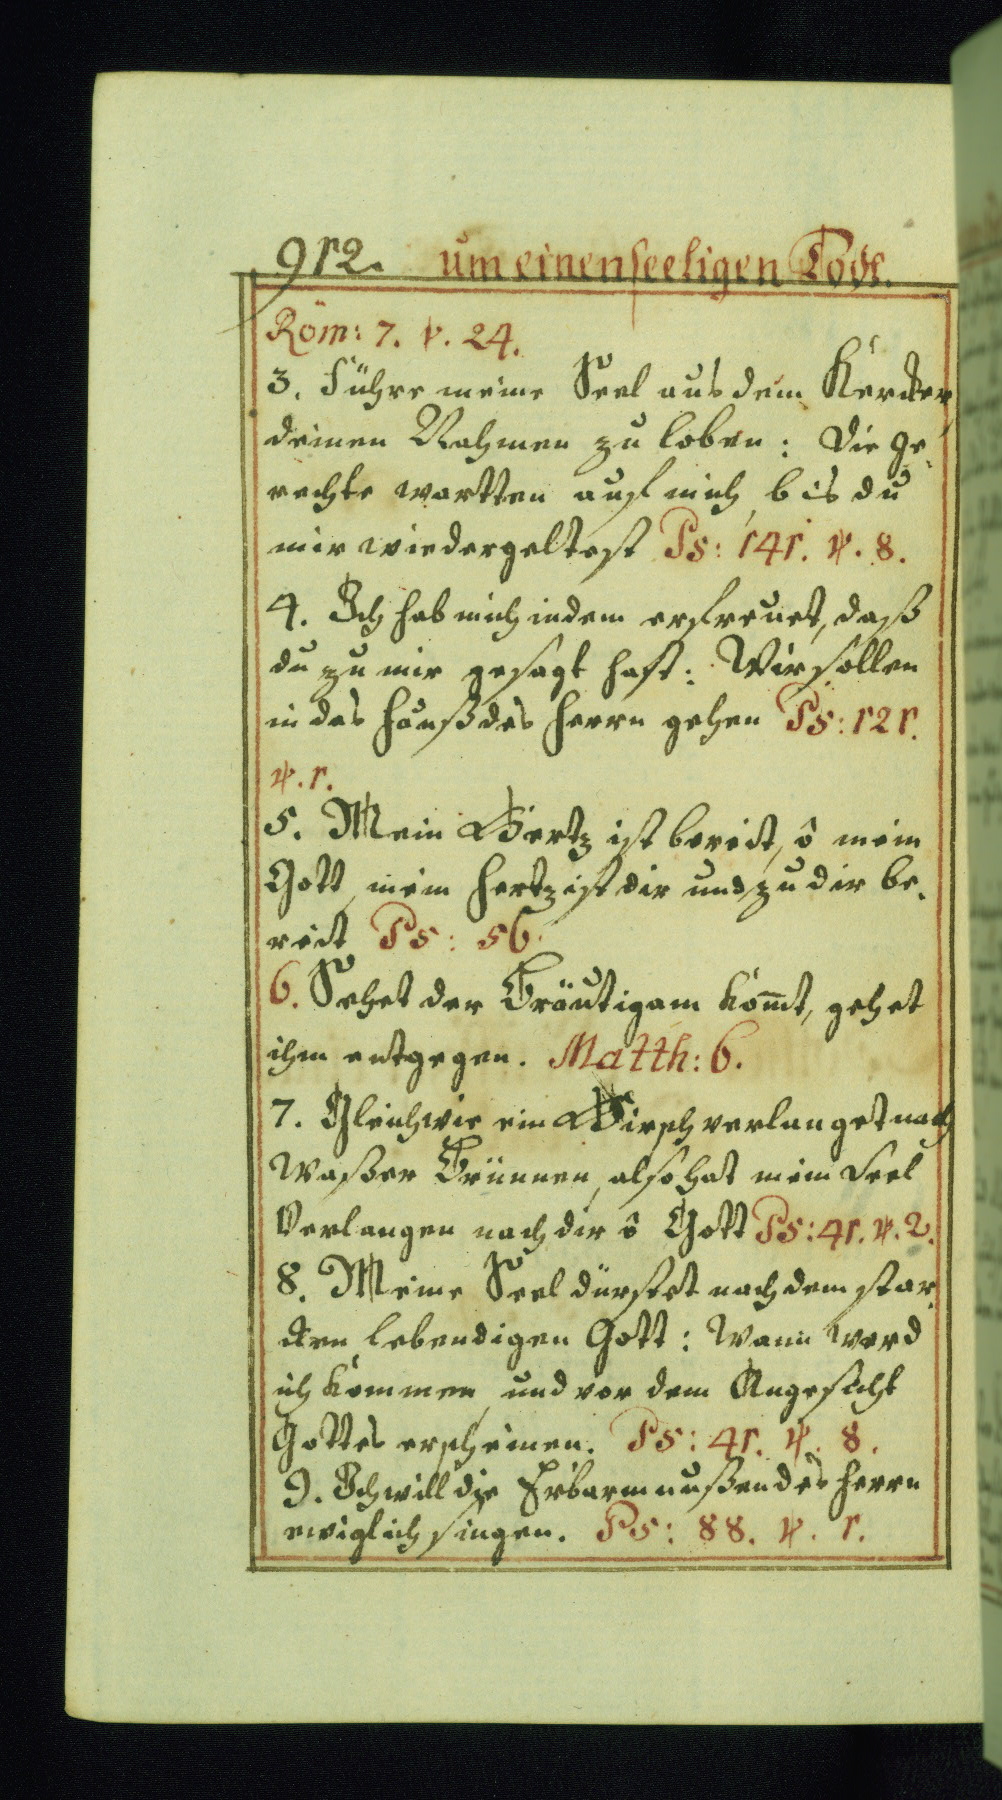 912. um einen seeligen Todt.
Röm: 7. v. 24.
3. Führe meine Seel aus dem Kercker,
deinen Nahmen zu loben: Die Ge-
rechte wartten auf mich, bis du
mir wiedergeltest Ps: 141. v. 8.
4. Ich hab mich indem erfreuet, daß
du zu mir gesagt hast: Wir sollen
in das Hauß des Herrn gehen Ps: 121.
v. 1.
5. Mein Hertz ist bereit, ô mein
Gott, mein Hertz ist dir und zu dir be-
reit Ps: 56.
6. Sehet der Bräutigam kom̄t, gehet
ihm entgegen. Matth: 6.
7. Gleichwie ein Hirsch verlanget nach
Waßer Brünnen, also hat mein Seel
Verlangen nach dir ô Gott Ps: 41. v. 2.
8. Meine Seel dürstet nach dem star-
cken lebendigen Gott: Wann werd
ich kommen, und vor dem Angesicht
Gottes erscheinen. Ps: 41. v. 8.
9. Ich will die Erbarmnußen des Herrn
ewiglich singen. Ps: 88. v. 1.